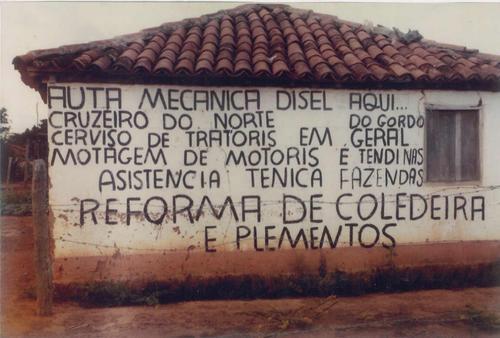 AUTA MECANICA DISEL AQUI...
CRUZEIRO DO NORTE DO GORDO
CERVISO DE TRATORIS EM GERAL
MOTAGEM DE MOTORIS E TENDI NAS
ASISTENCIA TENICA FAZENDAS
REFORMA DE COLEDEIRA
E PLEMENTOS